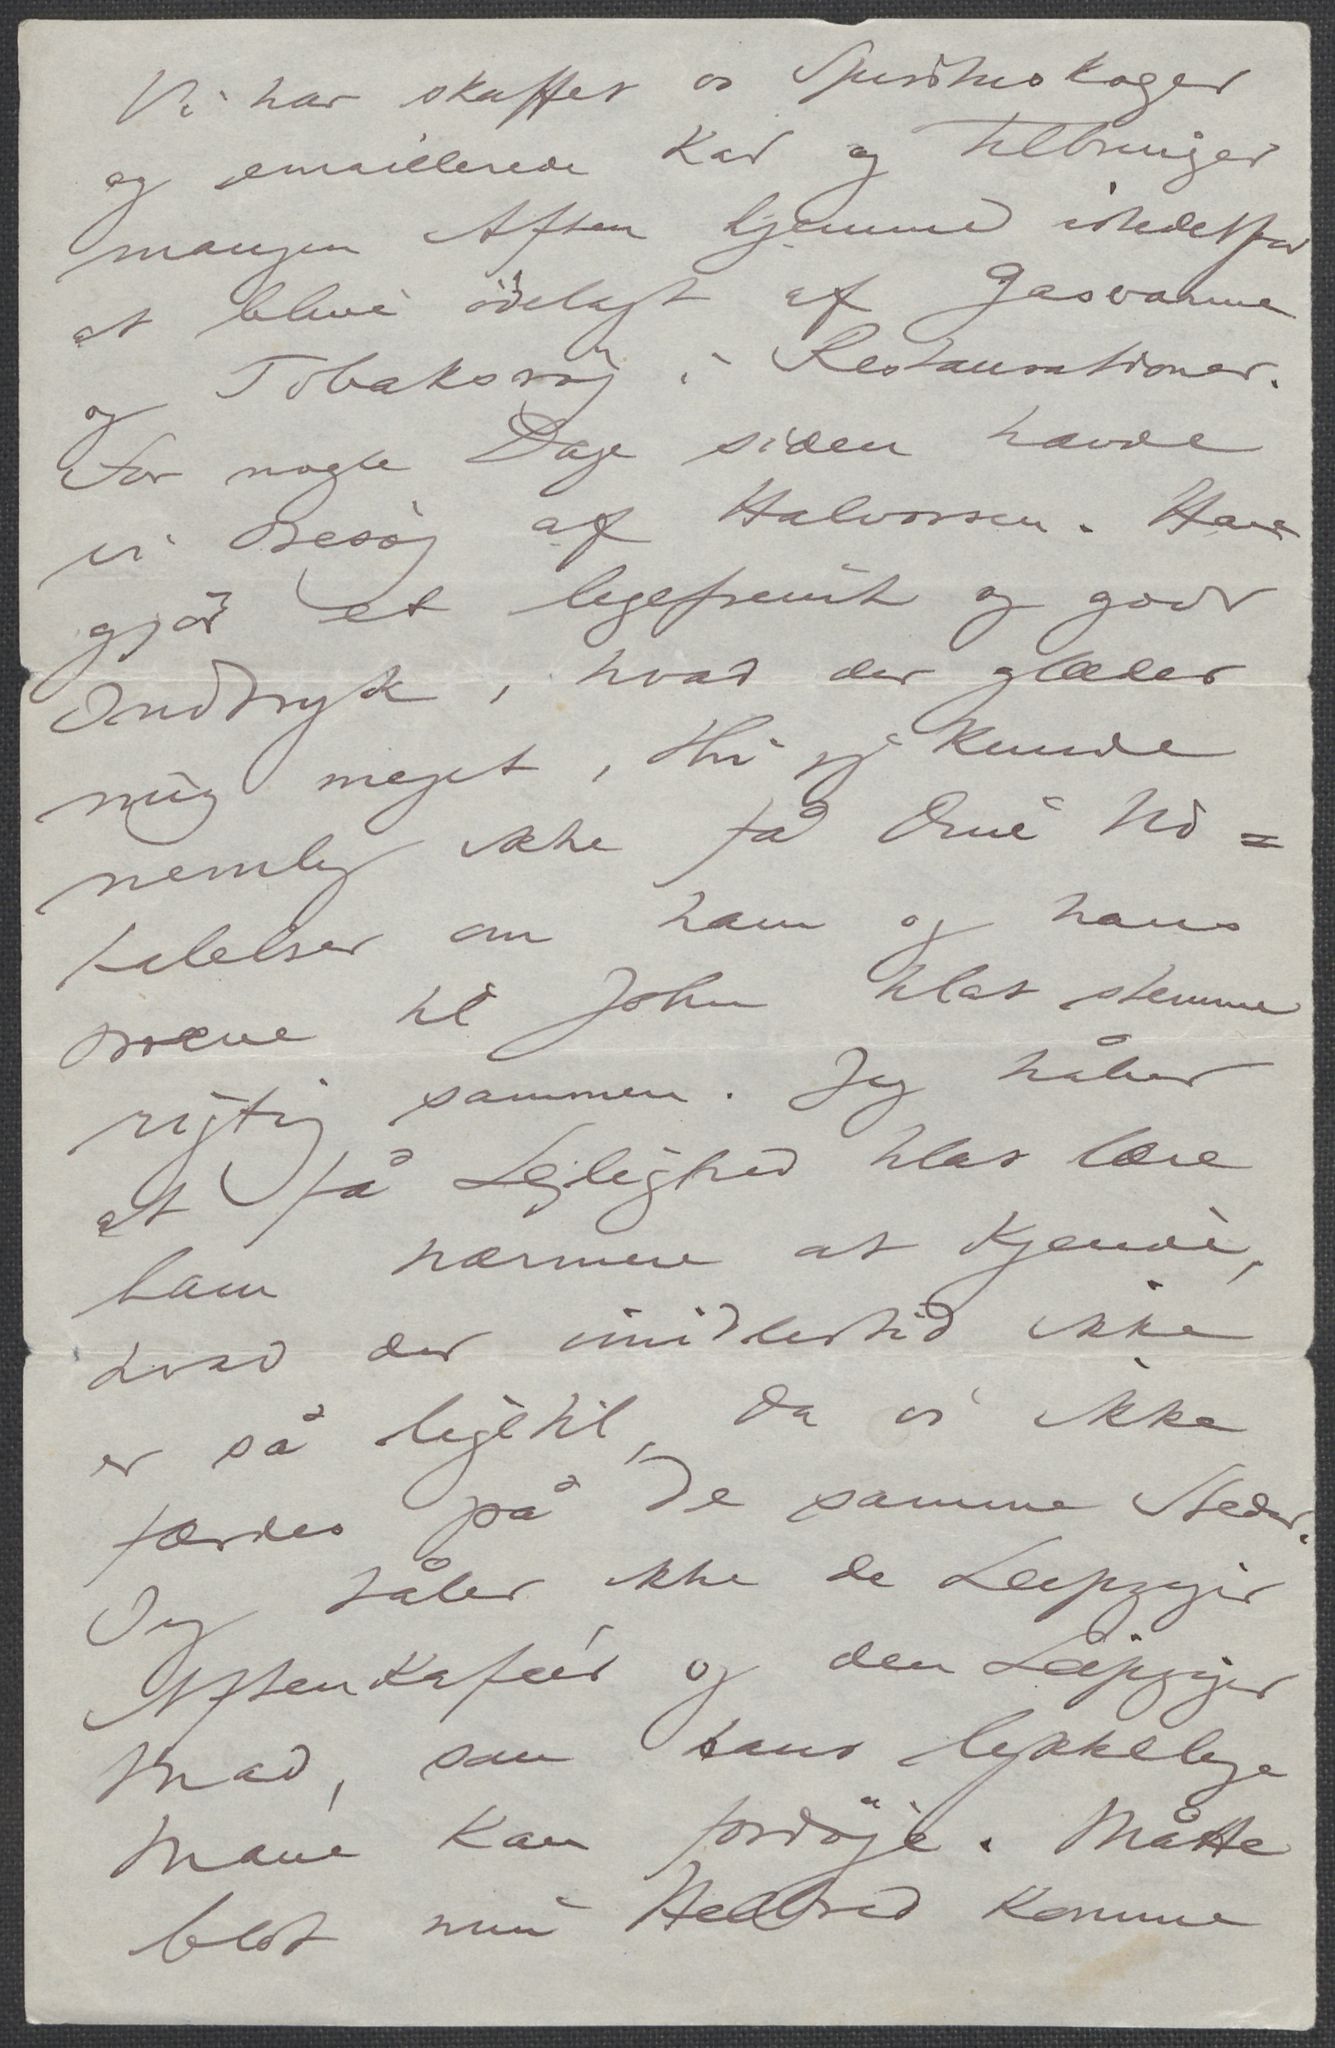 Vi har skaffet os Spirituskoger
og emaillerede Kar og tilbringer
mangen Aften hjemme istedetfor
at blive ödelagt af Gasvarme
og Tobaksrøg i Restaurationer.
For nogle Dage siden havde
vi Besøg af Halvorsen. Han
gjør et ligefremt og godt
Indtryk, hvad der glæder
mig meget, thi jeg kunde
nemlig ikke få Dine Ud=
talelser om ham og hans
Bræve til John til at stemme
rigtig sammen. Jeg håber
at få Lejlighed til at lære
ham nærmere at kjende,
hvad der imidlertid ikke
er så ligetil, da vi ikke
færdes på de samme Steder.
Jeg tåler ikke de Leipziger
Aftenkaféer og den Leipziger
Mad, som hans lykkelige
Mave kan fordöje. Måtte
blot min Helbred komme